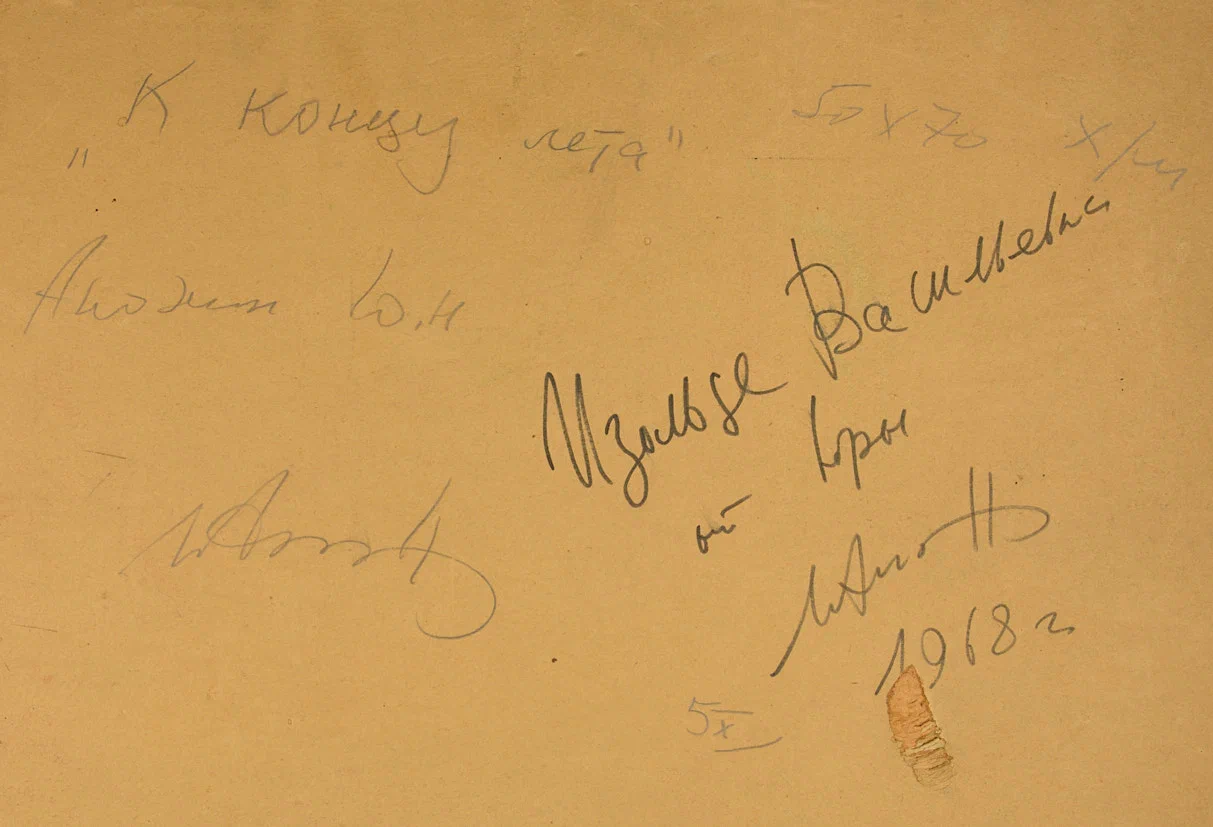 „К концу лета" 50 х 70 х/м
Анохин Ю.Н
Изольде Васильевны
от Юры
1968 г
5 X